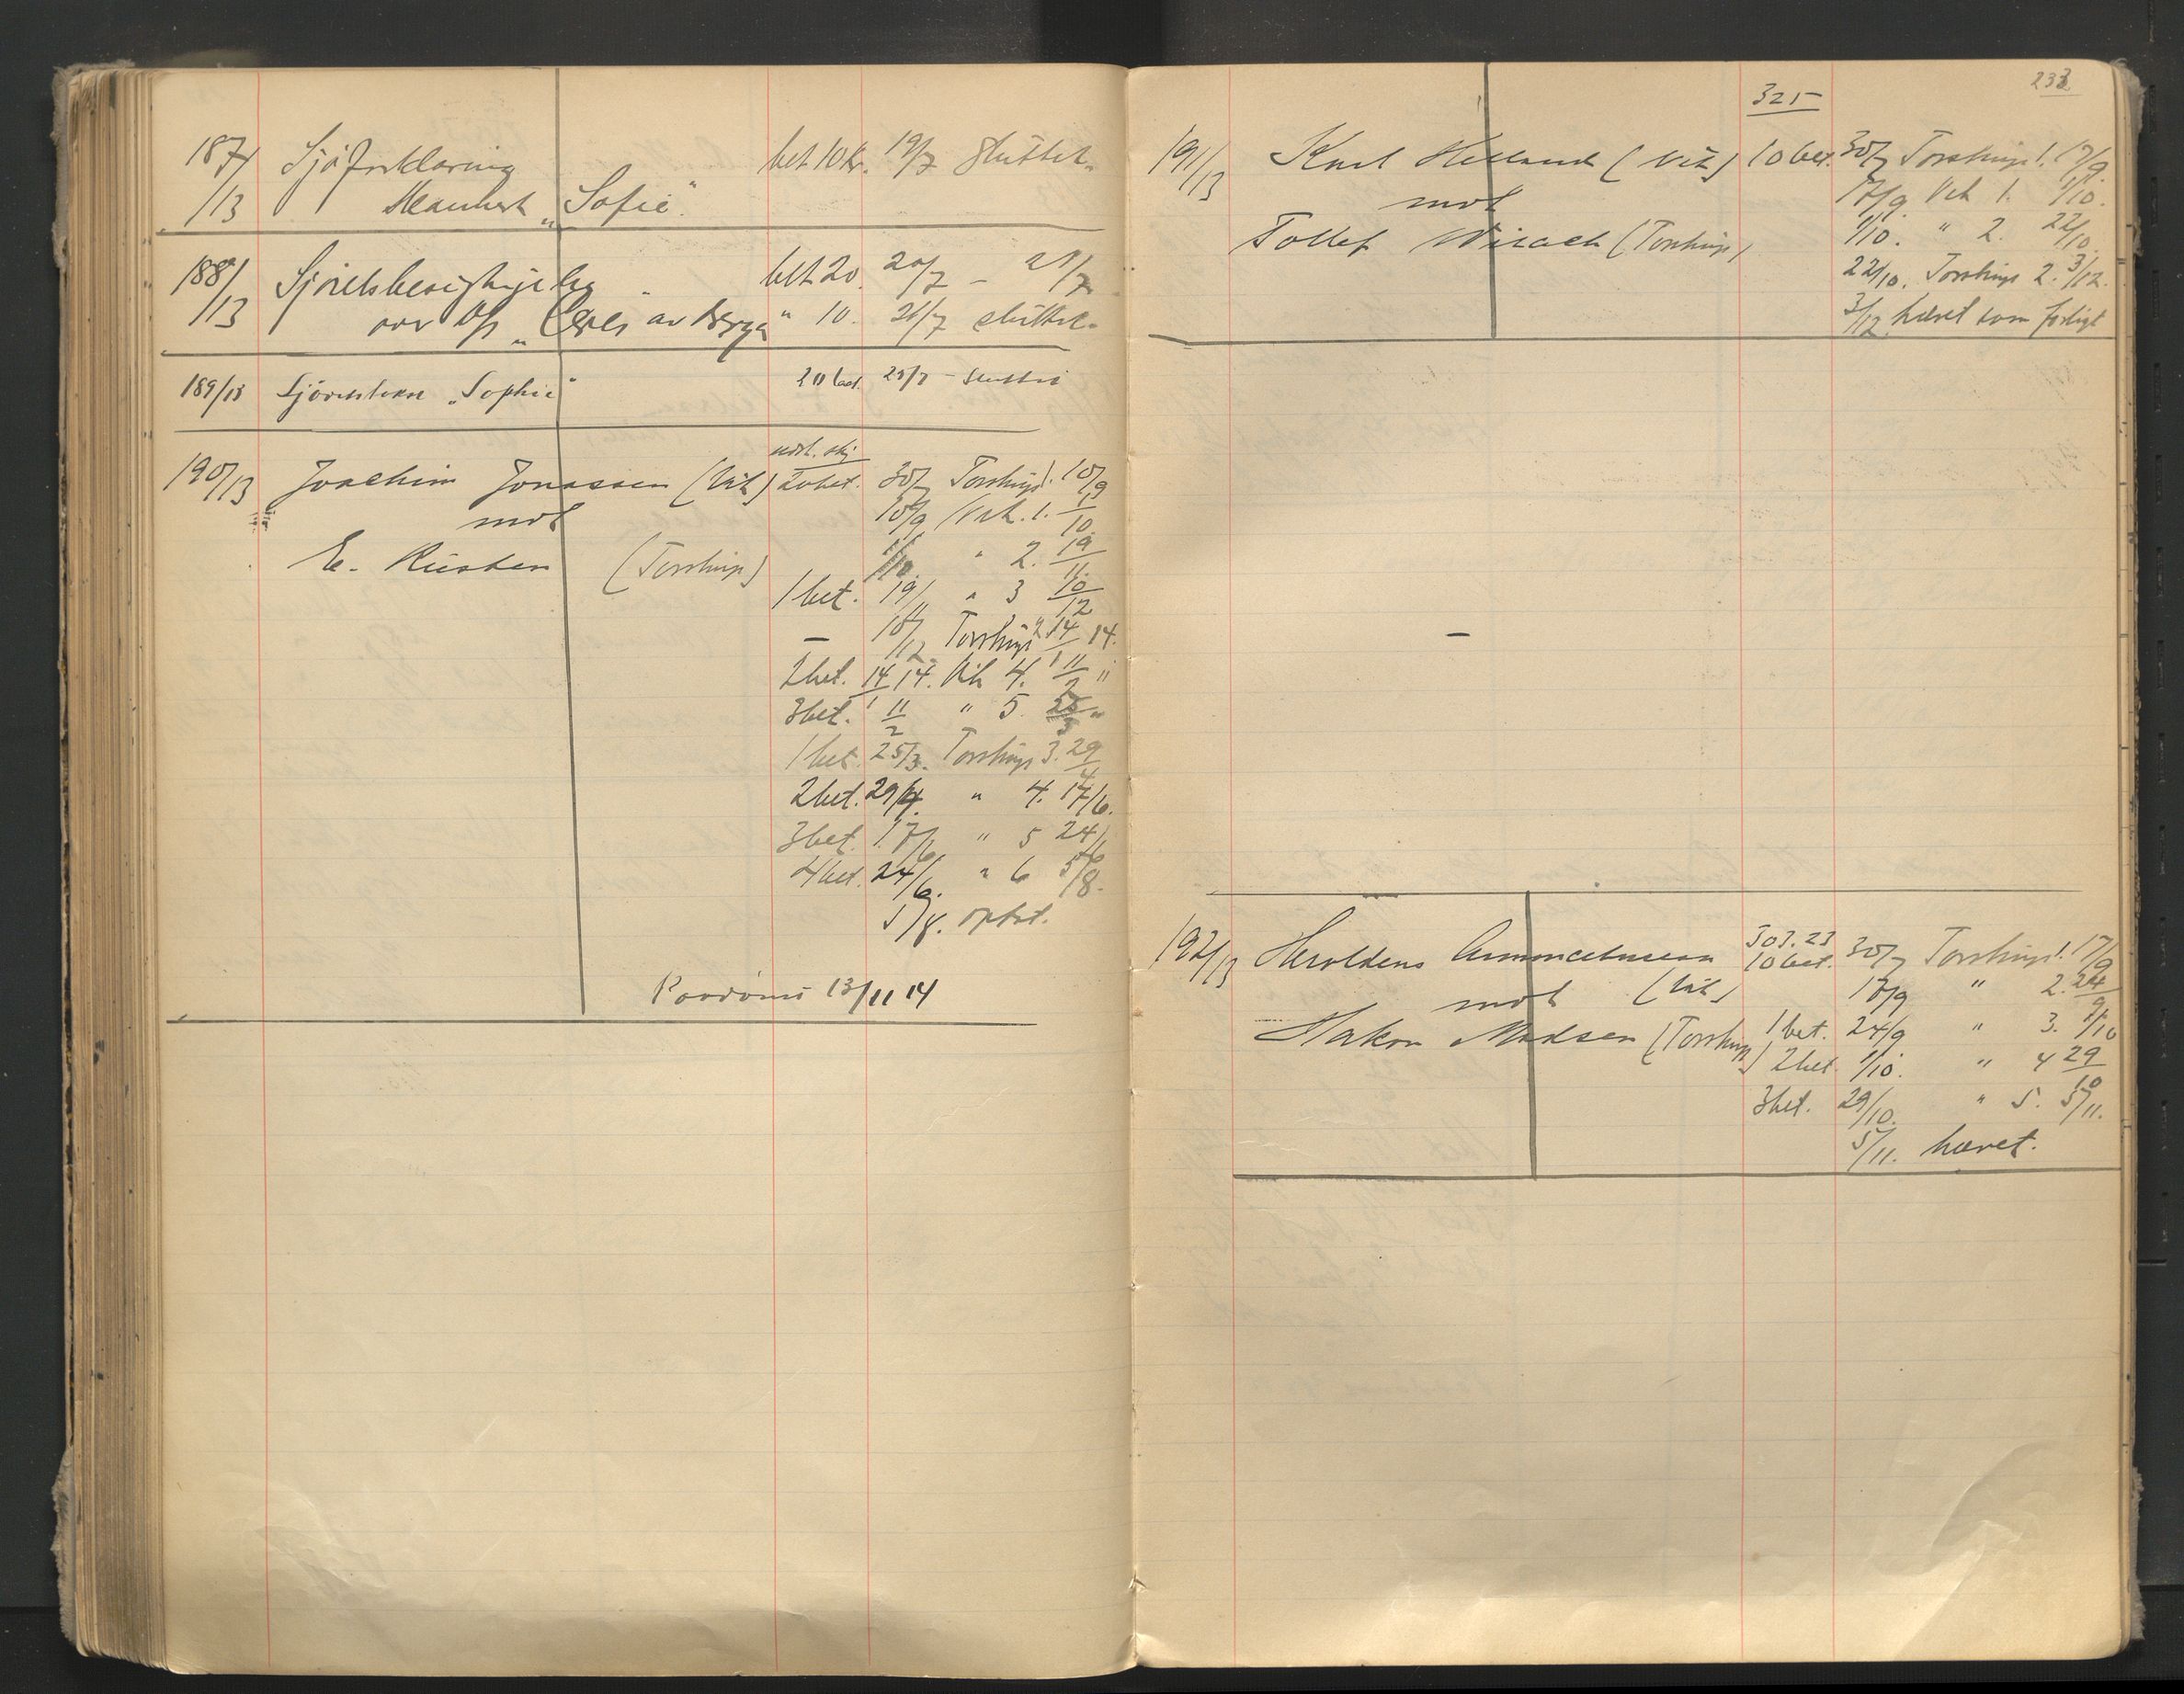 187/13 Sjöforklaring bet 10 kr. 19/7 sluttet.
"Sofie".
188/13 bet 20. 20/7 – 21/7
over D/s "Ceres" av Bergen " 10. 21/7 sluttet.
189/13 "Sophie" 20 bet. 25/7 – sluttet
190/13 Joachim Jonassen (Vik) 20 bet. 30/7 Torshings 1. 10/9
mot 10/9 Vik. 1. 1/10
E. Rusten (Torshings) 1/10 " 2. 19/11.
1 bet. 19/11 " 3 10/12
– 10/12 Torshings 2 14/1 14.
2 bet. 14/1 14. Vik 4. 11/2 "
3 bet. 11/2 " 5. 25/3 "
1 bet. 25/3. Torshings 3. 29/4
2 bet. 29/4. " 4. 17/6.
3 bet. 17/6 " 5 24/6
4 bet. 24/6. " 6 5/8.
5/8. optat.
13/11 14
233
325
191/13 Knut Helland (Vik) 10 bet. 30/7 Torshings 1. 17/9.
mot 17/9. Vik 1. 1/10.
Tollef (Torshings) 1/10. " 2. 22/10.
22/10. Torshings 2. 3/12.
3/12 hævet som forligt
–
303.23
192/13 Heroldens 10 bet. 30/7 Torshings 1. 17/9
mot (Vik) 17/9 " 2. 24/9
Hakon Madsen (Torshings) 1 bet. 24/9 " 3. 1/10
2 bet. 1/10. " 4 29/10
3 bet. 29/10. " 5. 5/11.
5/11. hævet.